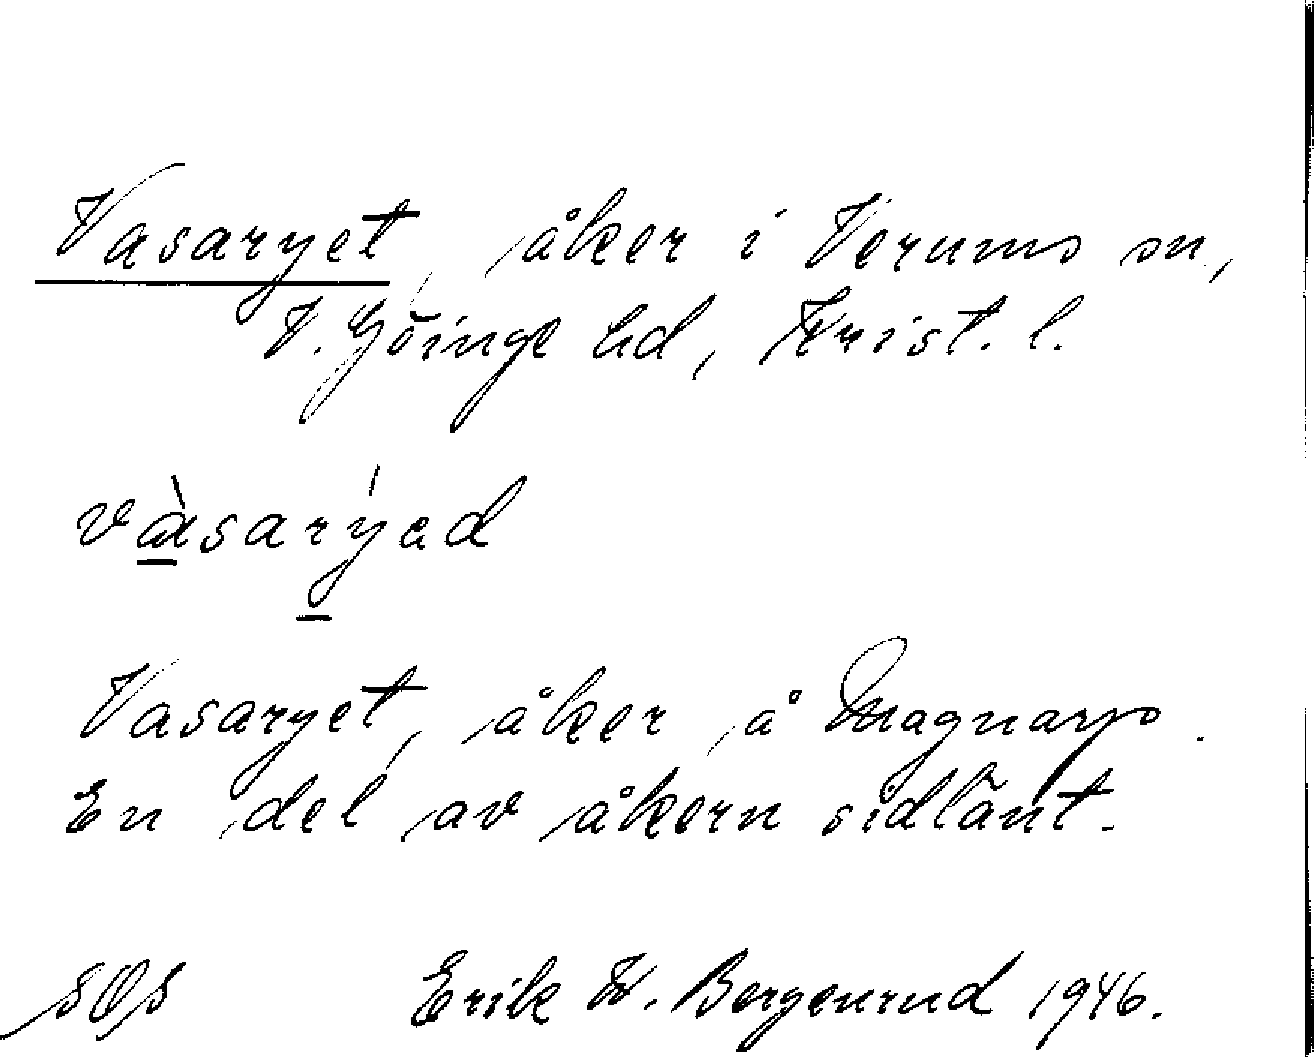 Vasaryet, åker i Verums sn,
V. Göinge hd, Krist. l.
vàsarýad
Vasaryet, åker å Magnarp.
En del av åkern sidlänt.
Erik W. Bergenrud 1946.